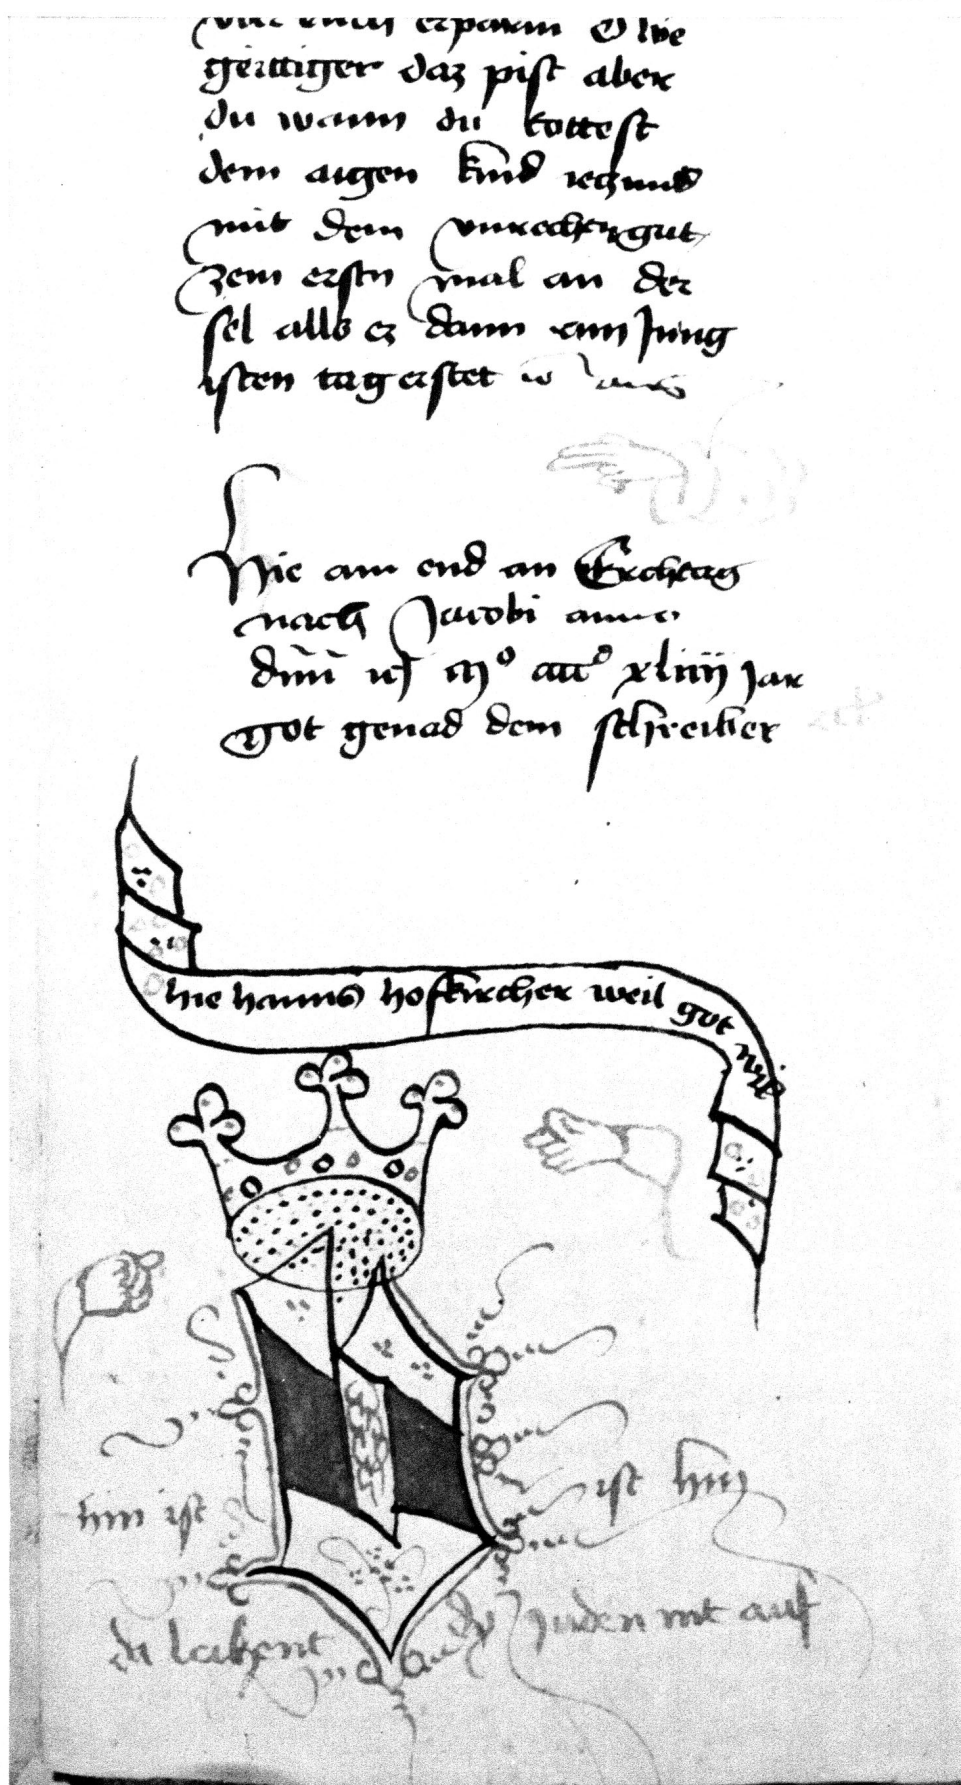 erparm O we
geittiger daz pist aber
du wann du tottest
dem aigen kind
mit dem vnrechten gut
zem ersten mal an der
sel alls ez dann am Jung
isten tag erstet
Hie am end an Erchtag
nach Jacobi anno
dm̄ xliiij Jar
got genad dem schreiber
hie hanns hofkircher weil got
hin ist
ist hin
di lakent dy Juden nit auf